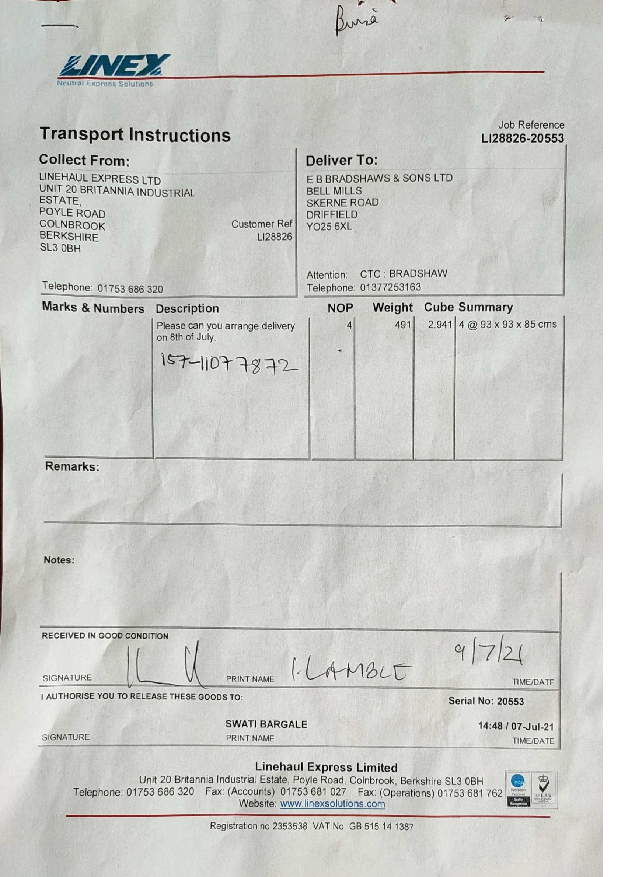 LINEX
Neutral Express Solutions
Transport Instructions
Job Reference
LI28826-20553
Collect From:
LINEHAUL EXPRESS LTD
UNIT 20 BRITANNIA INDUSTRIAL
ESTATE,
POYLE ROAD
COLNBROOK
BERKSHIRE
SL3 0BH
Customer Ref
LI28826
Telephone: 01753 686 320
Deliver To:
E B BRADSHAWS & SONS LTD
BELL MILLS
SKERNE ROAD
DRIFFIELD
YO25 6XL
Attention: CTC : BRADSHAW
Telephone: 01377253163
Marks & Numbers Description NOP Weight Cube Summary
Please can you arrange delivery 4 491 2.941 4 @ 93 x 93 x 85 cms
on 8th of July.
157-1107 7872
Remarks:
Notes:
RECEIVED IN GOOD CONDITION
SIGNATURE PRINT NAME I. LAMBLE 9/7/21
TIME/DATE
I AUTHORISE YOU TO RELEASE THESE GOODS TO:
Serial No: 20553
SWATI BARGALE 14:48 / 07-Jul-21
SIGNATURE PRINT NAME TIME/DATE
Linehaul Express Limited
Unit 20 Britannia Industrial Estate, Poyle Road, Colnbrook, Berkshire SL3 0BH
Telephone: 01753 686 320 Fax: (Accounts) 01753 681 027 Fax: (Operations) 01753 681 762
Website: www.linexsolutions.com
Registration no 2353538 VAT No GB 515 14 1387